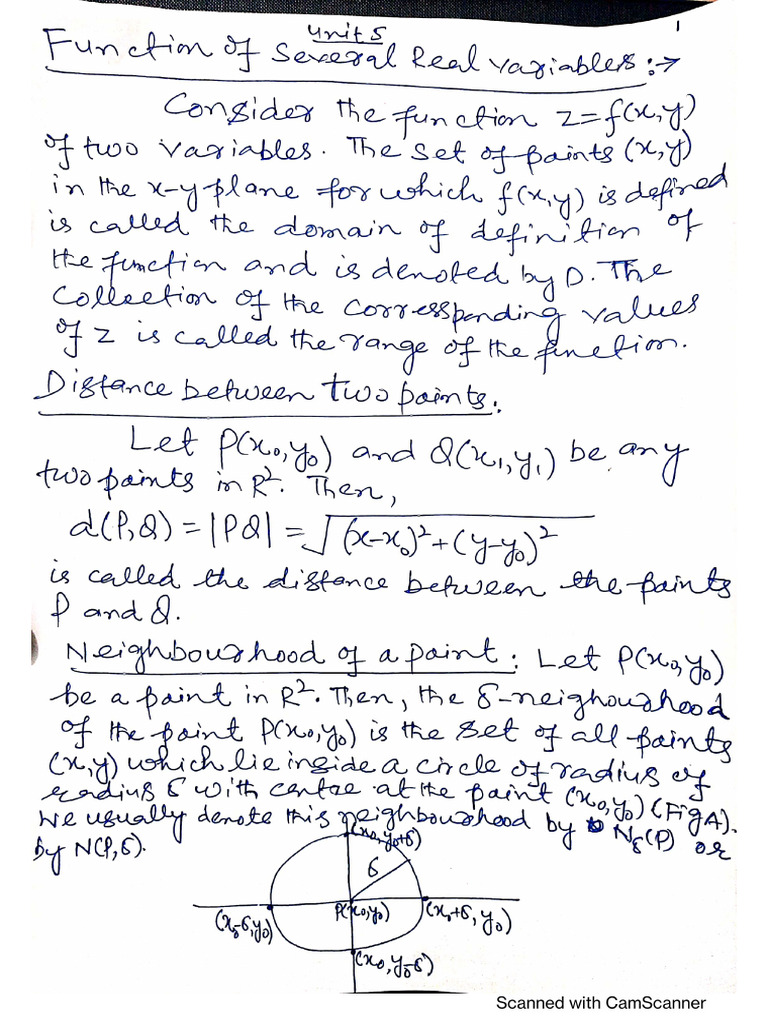 Unit 5
1
Function of Several Real variables :→
Consider the function z=f(x,y)
of two variables. The set of points (x,y)
in the x-y plane for which f(x,y) is defined
is called the domain of definition of
the function and is denoted by D. The
Collection of the corresponding values
of z is called the range of the function.
Distance between two points.
Let P(x₀,y₀) and Q(x₁,y₁) be any
two points in R². Then,
d(P,Q) = |PQ| = √(x-x₀)²+(y-y₀)²
is called the distance between the points
P and Q.
Neighbourhood of a point: Let P(x₀,y₀)
be a point in R². Then, the δ-neighourhood
of the point P(x₀,y₀) is the set of all points
(x,y) which lie inside a circle of radius of
radius δ with centre at the point (x₀,y₀) (Fig A).
We usually denote this neighbourhood by N_δ(P) or
by N(P,δ).
(x₀,y₀+δ)
δ
(x₀-δ,y₀)
P(x₀,y₀)
(x₀+δ,y₀)
(x₀,y₀-δ)
Scanned with CamScanner